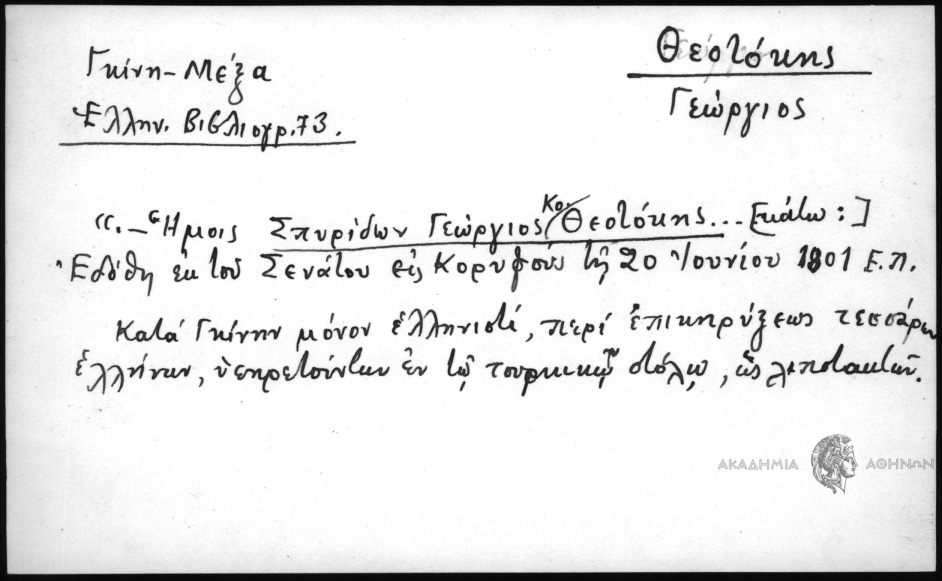 Θεοτόκης
Γεώργιος
Γκίνη-Μέξα
Ἑλλην. Βιβλιογρ. 73.
«.–Ἡμοις Σπυρίδων Γεώργιος Κο. Θεοτόκης... [κάτω:]
Ἐδόθη ἐκ τοῦ Σενάτου εἰς Κορυφούς τῇ 20 Ἰουνίου 1801 Ε.Π.
Κατά Γκίνην μόνον ἑλληνιστί, περί ἐπικηρύξεως τεσσάρων
ἑλλήνων, ὑπηρετούντων ἐν τῷ τουρκικῷ στόλῳ, ὡς λιποτακτῶν.
ΑΚΑΔΗΜΙΑ ΑΘΗΝΩΝ